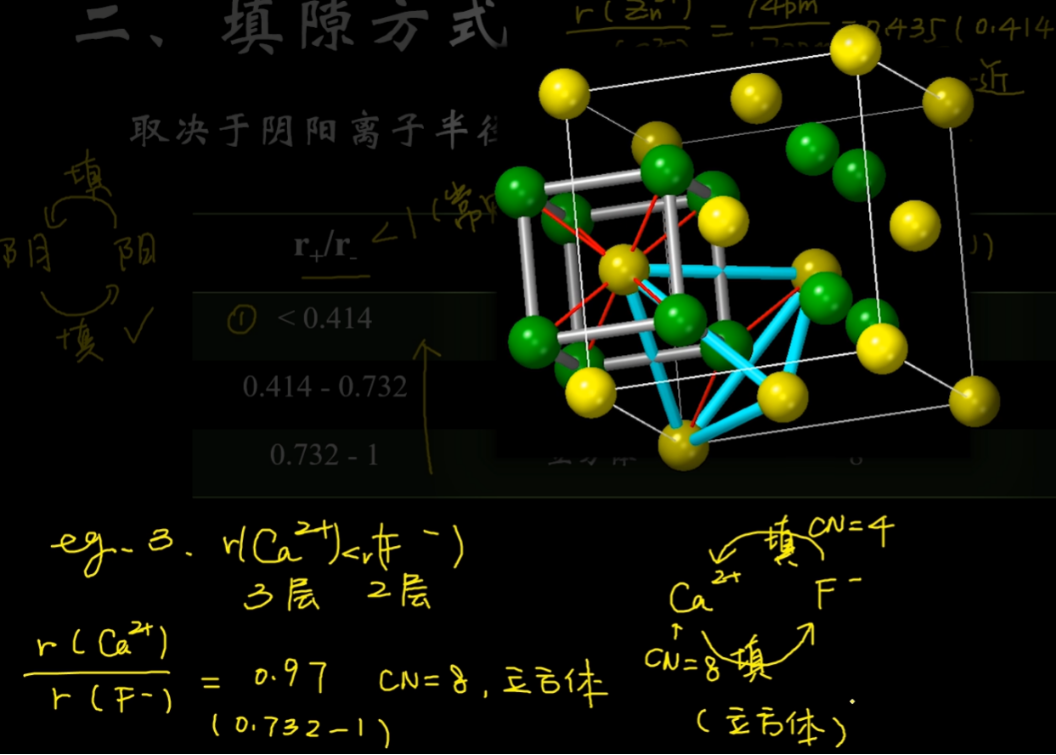 二、填隙方式
r(Zn²⁺)
74pm
=
=0.435(0.414
近
取决于阴阳离子半径
填
阴 阳
填 ✓
r₊/r₋ <1(常
① < 0.414
0.414 - 0.732
0.732 - 1
8
eg. 3. r(Ca²⁺)<r(F⁻)
3层 2层
r(Ca²⁺)
r(F⁻)
= 0.97 CN=8, 立方体
(0.732-1)
填 CN=4
Ca²⁺ F⁻
CN=8 填
(立方体)